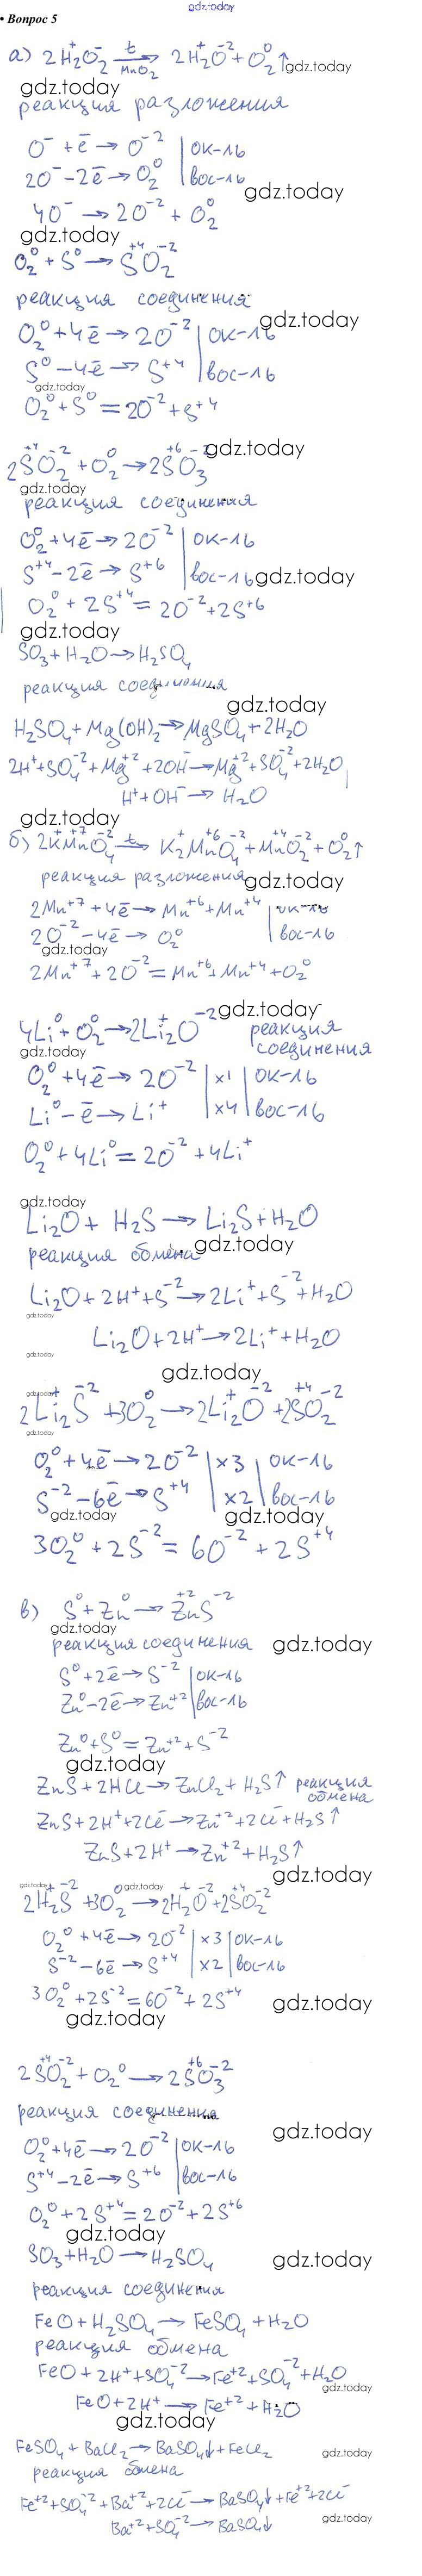 gdz.today
• Вопрос 5
а) 2H₂⁺O₂⁻ →(t, MnO₂) 2H₂⁺O⁻² + O₂⁰↑
gdz.today
gdz.today
реакция разложения
O⁻ + ē → O⁻² | ок-ль
2O⁻ - 2ē → O₂⁰ | вос-ль
gdz.today
4O⁻ → 2O⁻² + O₂⁰
gdz.today
O₂⁰ + S⁰ → S⁺⁴O₂⁻²
реакция соединения
gdz.today
O₂⁰ + 4ē → 2O⁻² | ок-ль
S⁰ - 4ē → S⁺⁴ | вос-ль
gdz.today
O₂⁰ + S⁰ = 2O⁻² + S⁺⁴
2S⁺⁴O₂⁻² + O₂⁰ → 2S⁺⁶O₃⁻²
gdz.today
gdz.today
реакция соединения
O₂⁰ + 4ē → 2O⁻² | ок-ль
S⁺⁴ - 2ē → S⁺⁶ | вос-ль
gdz.today
O₂⁰ + 2S⁺⁴ = 2O⁻² + 2S⁺⁶
gdz.today
SO₃ + H₂O → H₂SO₄
реакция соединения
gdz.today
H₂SO₄ + Mg(OH)₂ → MgSO₄ + 2H₂O
2H⁺ + SO₄⁻² + Mg⁺² + 2OH⁻ → Mg⁺² + SO₄⁻² + 2H₂O
H⁺ + OH⁻ → H₂O
gdz.today
б) 2K⁺Mn⁺⁷O₄⁻² →(t) K₂⁺Mn⁺⁶O₄⁻² + Mn⁺⁴O₂⁻² + O₂⁰↑
реакция разложения
gdz.today
2Mn⁺⁷ + 4ē → Mn⁺⁶ + Mn⁺⁴ | ок-ль
2O⁻² - 4ē → O₂⁰ | вос-ль
gdz.today
2Mn⁺⁷ + 2O⁻² = Mn⁺⁶ + Mn⁺⁴ + O₂⁰
gdz.today
4Li⁰ + O₂⁰ → 2Li₂⁺O⁻² реакция
соединения
gdz.today
O₂⁰ + 4ē → 2O⁻² | x1 | ок-ль
Li⁰ - ē → Li⁺ | x4 | вос-ль
O₂⁰ + 4Li⁰ = 2O⁻² + 4Li⁺
gdz.today
Li₂O + H₂S → Li₂S + H₂O
реакция обмена
gdz.today
Li₂O + 2H⁺ + S⁻² → 2Li⁺ + S⁻² + H₂O
gdz.today
Li₂O + 2H⁺ → 2Li⁺ + H₂O
gdz.today
gdz.today
gdz.today
2Li₂⁺S⁻² + 3O₂⁰ → 2Li₂⁺O⁻² + 2S⁺⁴O₂⁻²
gdz.today
O₂⁰ + 4ē → 2O⁻² | x3 | ок-ль
S⁻² - 6ē → S⁺⁴ | x2 | вос-ль
gdz.today
gdz.today
3O₂⁰ + 2S⁻² = 6O⁻² + 2S⁺⁴
в) S⁰ + Zn⁰ → Zn⁺²S⁻²
gdz.today
реакция соединения
gdz.today
S⁰ + 2ē → S⁻² | ок-ль
Zn⁰ - 2ē → Zn⁺² | вос-ль
Zn⁰ + S⁰ = Zn⁺² + S⁻²
gdz.today
ZnS + 2HCl → ZnCl₂ + H₂S↑ реакция
обмена
ZnS + 2H⁺ + 2Cl⁻ → Zn⁺² + 2Cl⁻ + H₂S↑
ZnS + 2H⁺ → Zn⁺² + H₂S↑
gdz.today
gdz.today
gdz.today
2H₂⁺S⁻² + 3O₂⁰ → 2H₂⁺O⁻² + 2S⁺⁴O₂⁻²
O₂⁰ + 4ē → 2O⁻² | x3 | ок-ль
S⁻² - 6ē → S⁺⁴ | x2 | вос-ль
3O₂⁰ + 2S⁻² = 6O⁻² + 2S⁺⁴
gdz.today
gdz.today
2S⁺⁴O₂⁻² + O₂⁰ → 2S⁺⁶O₃⁻²
реакция соединения
gdz.today
O₂⁰ + 4ē → 2O⁻² | ок-ль
S⁺⁴ - 2ē → S⁺⁶ | вос-ль
O₂⁰ + 2S⁺⁴ = 2O⁻² + 2S⁺⁶
gdz.today
SO₃ + H₂O → H₂SO₄
gdz.today
реакция соединения
FeO + H₂SO₄ → FeSO₄ + H₂O
реакция обмена
FeO + 2H⁺ + SO₄⁻² → Fe⁺² + SO₄⁻² + H₂O
gdz.today
FeO + 2H⁺ → Fe⁺² + H₂O
gdz.today
FeSO₄ + BaCl₂ → BaSO₄↓ + FeCl₂
gdz.today
реакция обмена
Fe⁺² + SO₄⁻² + Ba⁺² + 2Cl⁻ → BaSO₄↓ + Fe⁺² + 2Cl⁻
gdz.today
Ba⁺² + SO₄⁻² → BaSO₄↓